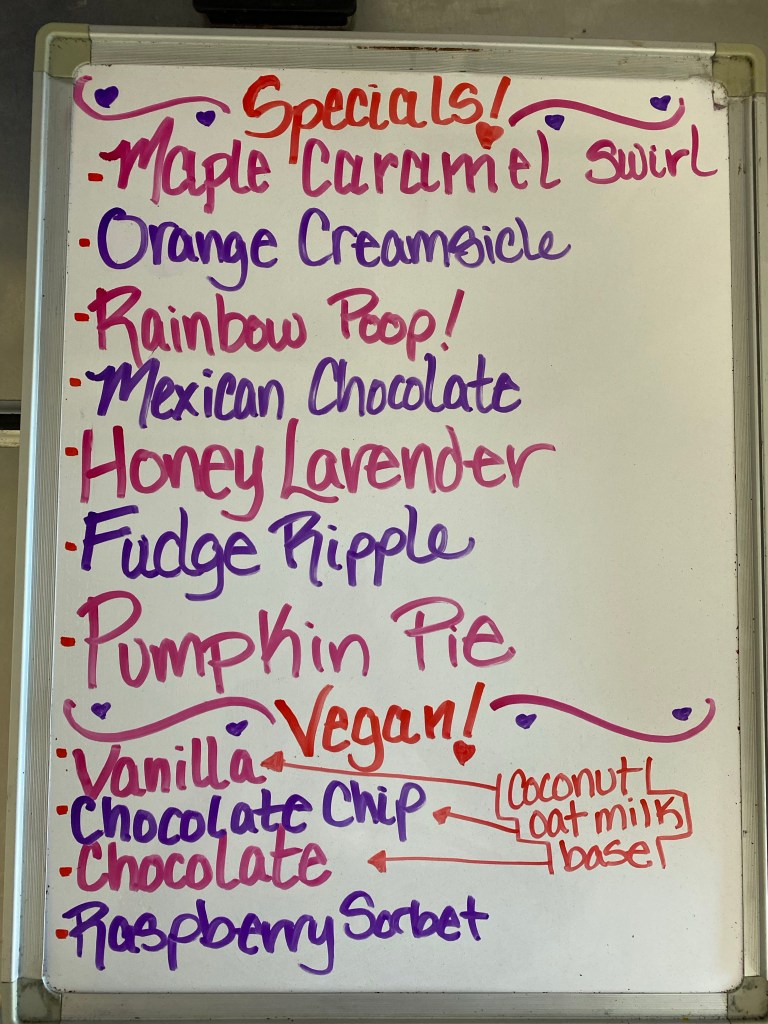 Specials!
Maple Caramel Swirl
Orange Creamsicle
Rainbow Poop!
Mexican Chocolate
Honey Lavender
Fudge Ripple
Pumpkin Pie
Vegan!
Vanilla
Chocolate Chip
Chocolate
Raspberry Sorbet
Coconut/
oat milk
base